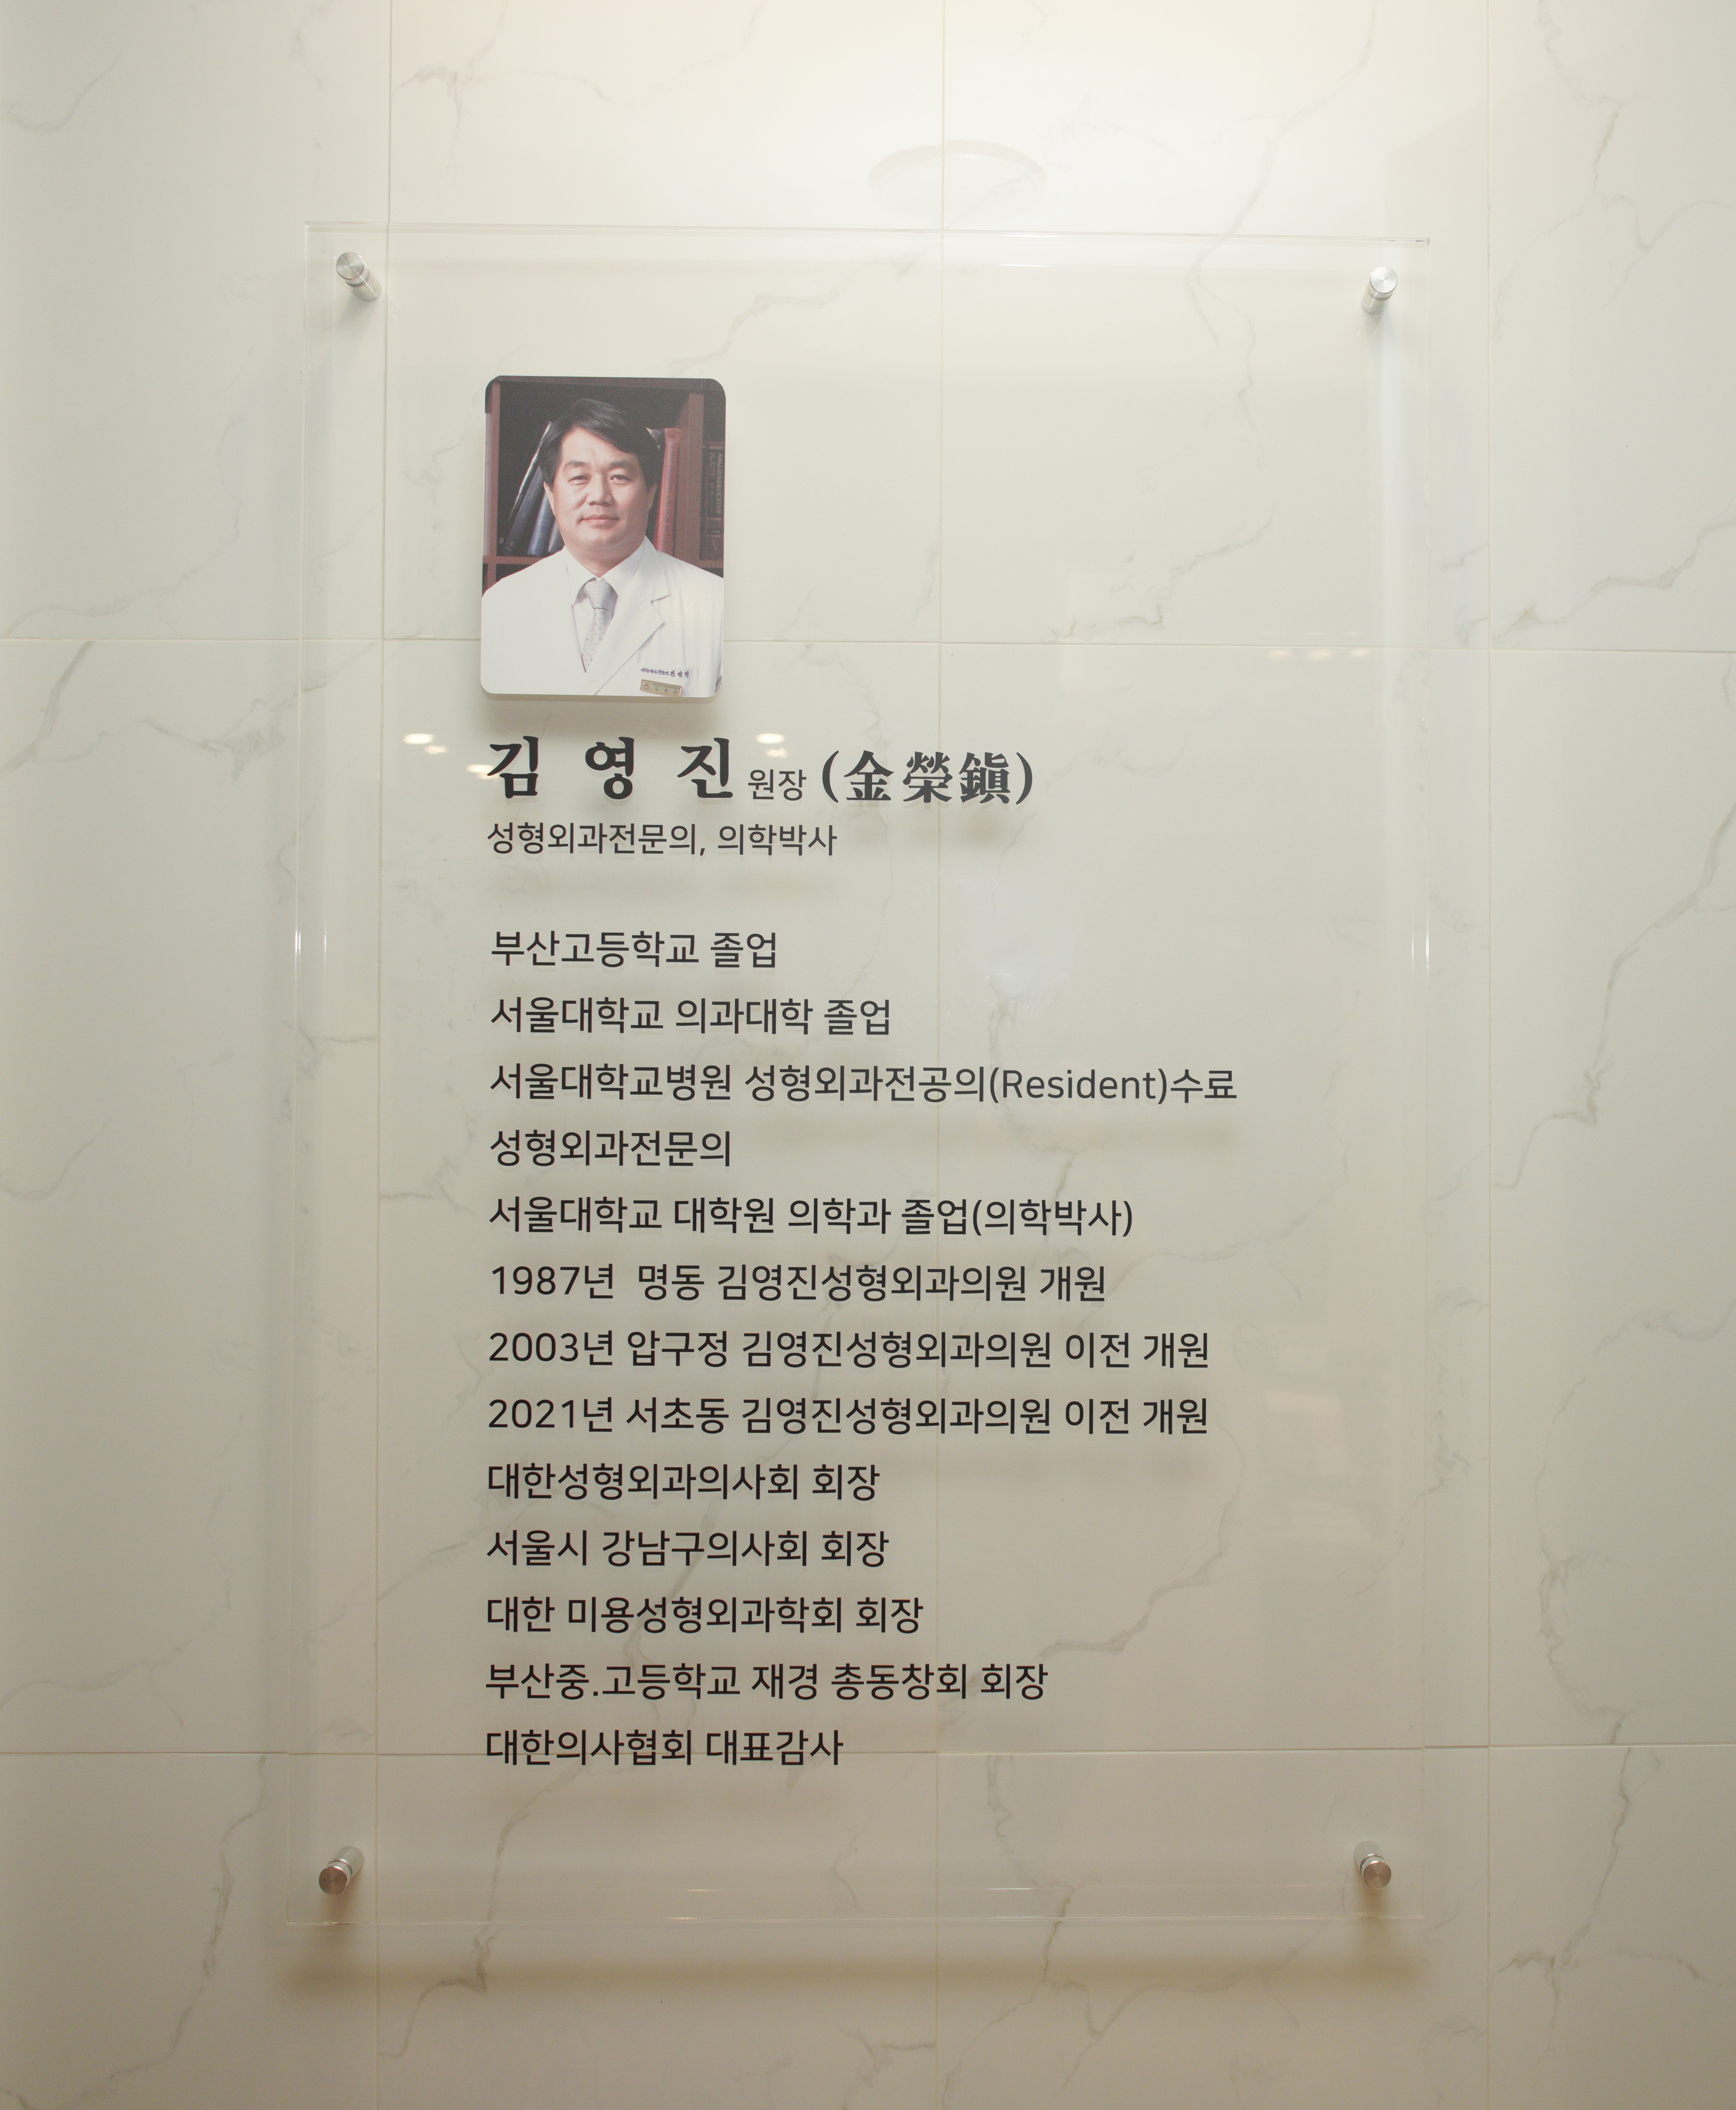 김 영 진 원장 (金榮鎭)
성형외과전문의, 의학박사
부산고등학교 졸업
서울대학교 의과대학 졸업
서울대학교병원 성형외과전공의(Resident)수료
성형외과전문의
서울대학교 대학원 의학과 졸업(의학박사)
1987년 명동 김영진성형외과의원 개원
2003년 압구정 김영진성형외과의원 이전 개원
2021년 서초동 김영진성형외과의원 이전 개원
대한성형외과의사회 회장
서울시 강남구의사회 회장
대한 미용성형외과학회 회장
부산중.고등학교 재경 총동창회 회장
대한의사협회 대표감사